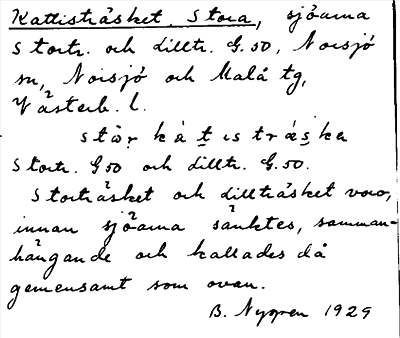 Kattisträsket, Stora, sjöarna
Stortr. och Lilltr. G.50, Norsjö
sn, Norsjö och Malå tg,
Västerb. l.
stōr kátıstrǽska
Stortr. G50 och Lilltr. G.50.
Storträsket och Lillträsket voro,
innan sjöarna sänktes, samman-
hängande och kallades då
gemensamt som ovan.
B. Nygren 1929